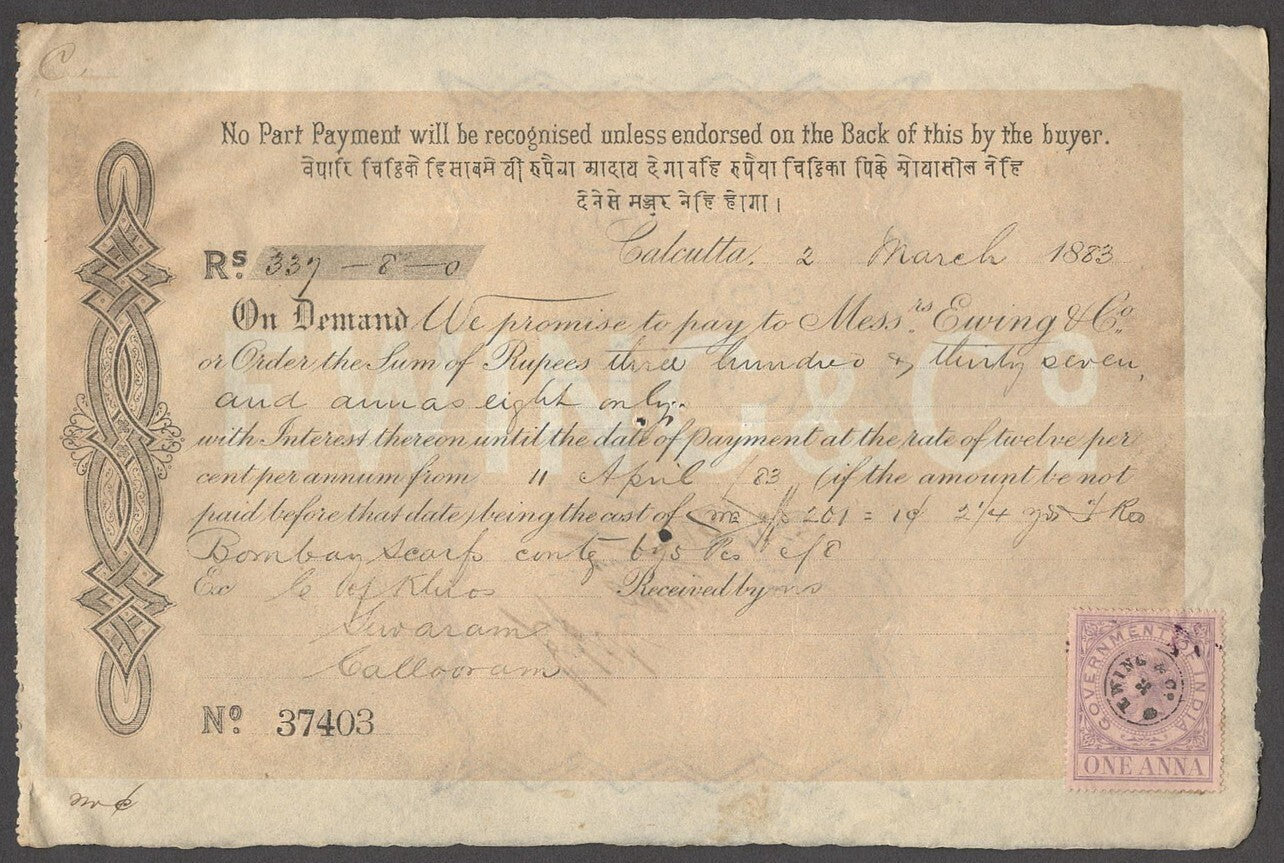 No Part Payment will be recognised unless endorsed on the Back of this by the buyer.
वेपारि चिट्ठिके हिसाबमे यी रुपैया आदाय देगा वहि रुपैया चिट्ठिका पिके ओयासील नेहि
देनेसे मञ्जुर नेहि होगा।
Calcutta, 2 March 1883
Rs. 337 - 8 - 0
On Demand We promise to pay to Messrs. Ewing & Co.
or Order the Sum of Rupees three hundred & thirty seven,
and annas eight only.
with Interest thereon until the date of payment at the rate of twelve per
cent per annum from 11 April /83 (if the amount be not
paid before that date) being the cost of 201 = 2 1/4
Bombay Scarf
Received by
Sewaram
Callooram
No. 37403
EWING & Co
GOVERNMENT OF INDIA
EWING & Co.
ONE ANNA